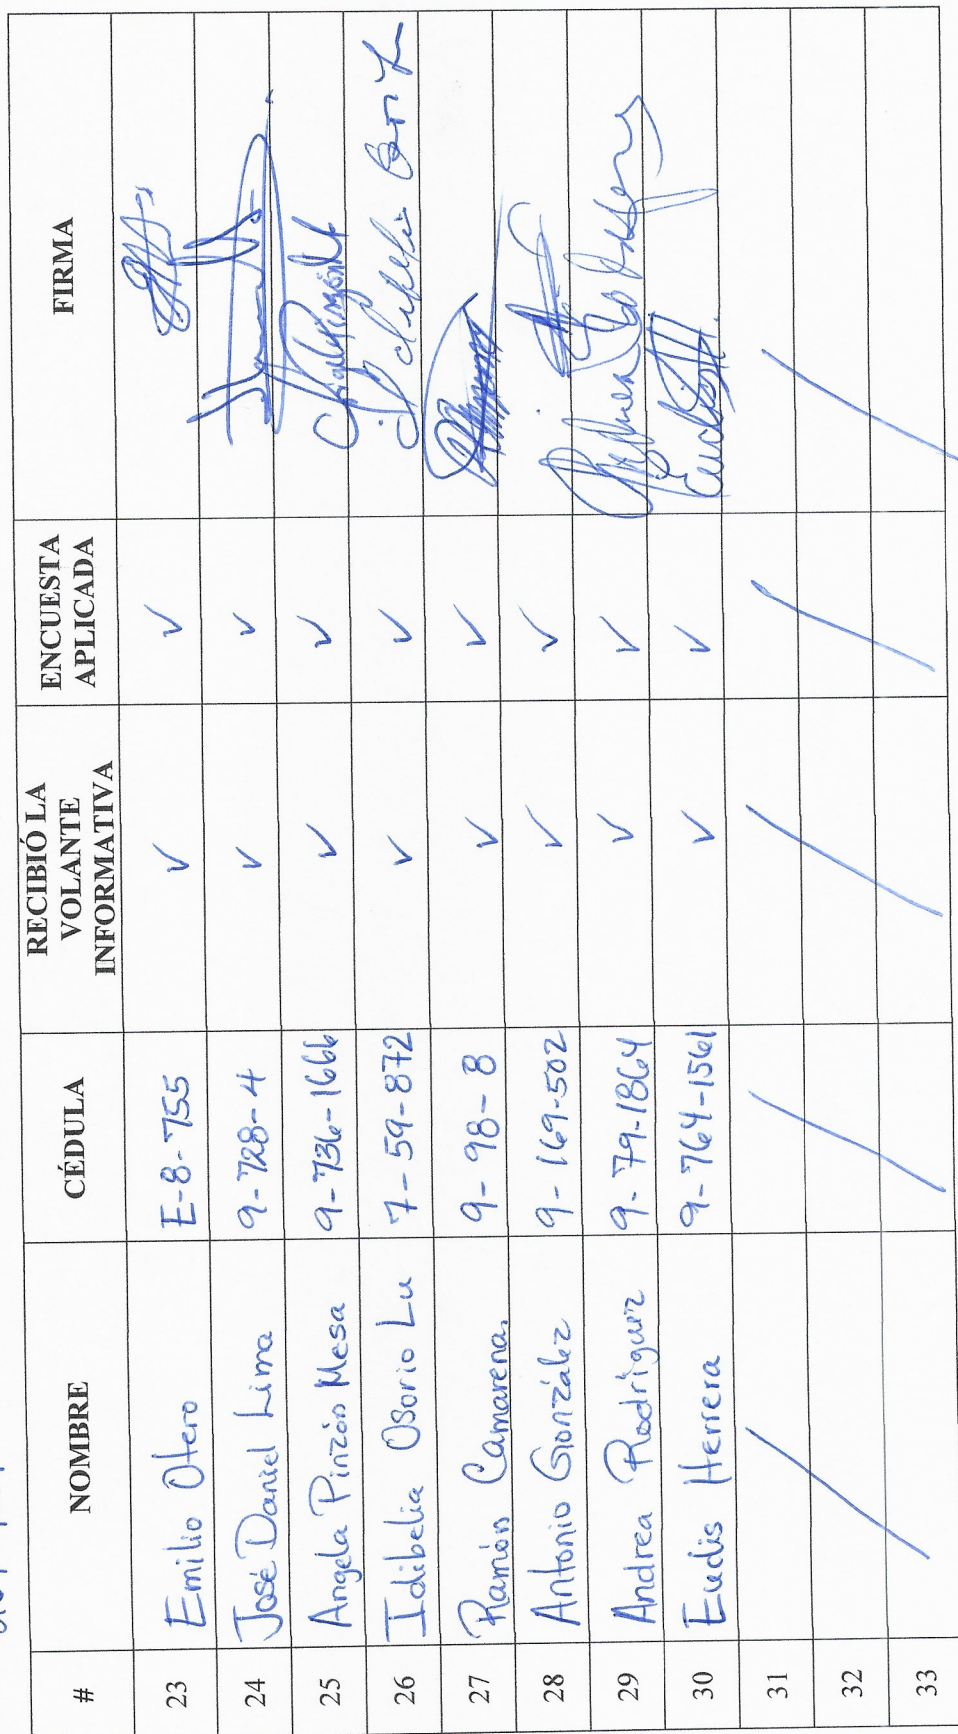 # NOMBRE CÉDULA RECIBIÓ LA VOLANTE INFORMATIVA ENCUESTA APLICADA FIRMA
23 Emilio Otero E-8-755 ✓ ✓
24 José Daniel Lima 9-728-4 ✓ ✓
25 Angela Pinzón Mesa 9-736-1666 ✓ ✓
26 Idibelia Osorio Lu 7-59-872 ✓ ✓
27 Ramón Camarena. 9-98-8 ✓ ✓
28 Antonio González 9-169-502 ✓ ✓
29 Andrea Rodríguez 9-79-1864 ✓ ✓
30 Eudis Herrera 9-764-1561 ✓ ✓
31
32
33